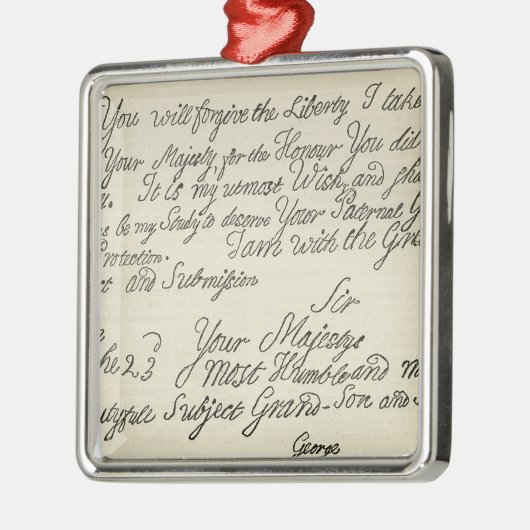 You will forgive the Liberty I take
Your Majesty for the Honour You did
It is my utmost Wish, and
be my Study to deserve Your Paternal
Protection. I am with the
and Submission
Sir
Your Majestys
he 23d Most Humble and
Subject Grand-Son and
George